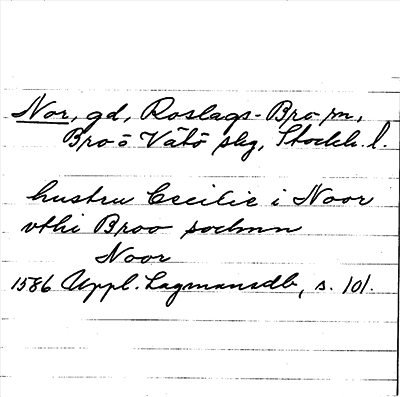 Nor, gd, Roslags-Bro sn,
Bro o Vätö skg, Stockh. l.
hustru Cecilie i Noor
vthi Broo sochnn
Noor
1586 Uppl. Lagmansdb, s. 101.